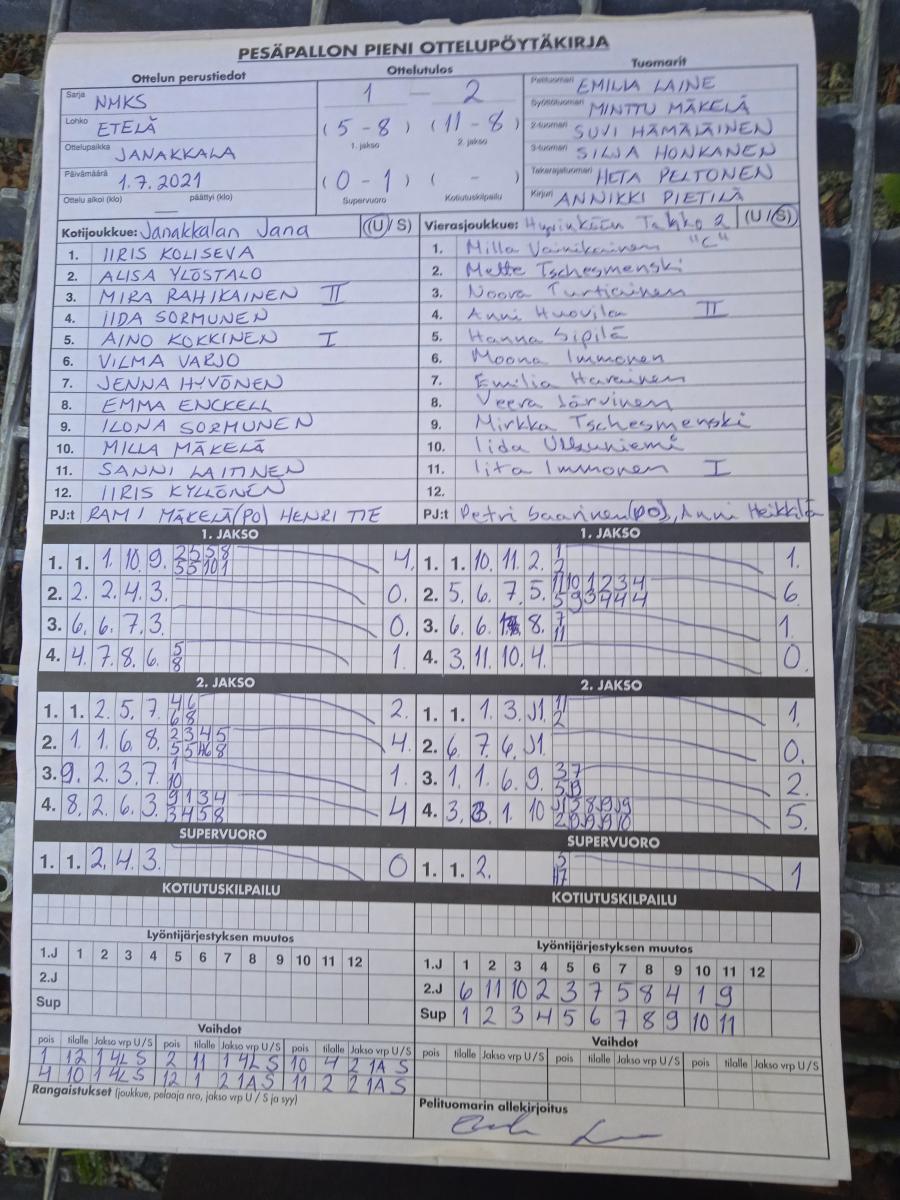 PESÄPALLON PIENI OTTELUPÖYTÄKIRJA
Ottelun perustiedot
Sarja NMKS
Lohko ETELÄ
Ottelupaikka JANAKKALA
Päivämäärä 1.7.2021
Ottelu alkoi (klo) — päättyi (klo)
Ottelutulos
1 — 2
(5-8) (11-8)
1. jakso 2. jakso
(0-1) ( - )
Supervuoro Kotiutuskilpailu
Tuomarit
Pelituomari EMILIA LAINE
Syöttötuomari MINTTU MÄKELÄ
2-tuomari SUVI HÄMÄLÄINEN
3-tuomari SILJA HONKANEN
Takarajatuomari HETA PELTONEN
Kirjuri ANNIKKI PIETILÄ
Kotijoukkue: Janakkalan Jana (U/S)
1. IIRIS KOLISEVA
2. ALISA YLÖSTALO
3. MIRA RAHIKAINEN II
4. IIDA SORMUNEN
5. AINO KOKKINEN I
6. VILMA VARJO
7. JENNA HYVÖNEN
8. EMMA ENCKELL
9. ILONA SORMUNEN
10. MILLA MÄKELÄ
11. SANNI LAITINEN
12. IIRIS KYLLÖNEN
PJ:t RAMI MÄKELÄ(PO) HENRI TIE
Vierasjoukkue: Hyvinkään Tahko 2 (U/S)
1. Milla Vainikainen "C"
2. Mette Tschesmenski
3. Noora Turtiainen
4. Anni Huovila II
5. Hanna Sipilä
6. Moona Immonen
7. Emilia Harainen
8. Veera Järvinen
9. Mirkka Tschesmenski
10. Iida
11. Iita Immonen I
12.
PJ:t Petri Saarinen(PO), Anni Heikkilä
1. JAKSO
1. 1. 1. 10. 9. 2 5 5 8 4.
5 5 10 1
2. 2. 2. 4. 3. 0.
3. 6. 6. 7. 3. 0.
4. 4. 7. 8. 6. 5 1.
8
1. JAKSO
1. 1. 10. 11. 2. 1 1.
2
2. 5. 6. 7. 5. 11 10 1 2 3 4 6.
5 9 3 4 4 4
3. 6. 6. 8. 7 1.
11
4. 3. 11. 10. 4. 0.
2. JAKSO
1. 1. 2. 5. 7. 4 6 2.
6 8
2. 1. 1. 6. 8. 2 3 4 5 4.
5 5 6 8
3. 9. 2. 3. 7. 1 1.
10
4. 8. 2. 6. 3. 9 1 3 4 4
3 4 5 8
2. JAKSO
1. 1. 1. 3. J1. 11 1.
2
2. 6. 7. 6. J1. 0.
3. 1. 1. 6. 9. 3 7 2.
4. 3. 1. 10 5.
SUPERVUORO
1. 1. 2. 4. 3. 0
SUPERVUORO
1. 1. 2. 5 1
KOTIUTUSKILPAILU
KOTIUTUSKILPAILU
Lyöntijärjestyksen muutos
1.J 1 2 3 4 5 6 7 8 9 10 11 12
2.J
Sup
Lyöntijärjestyksen muutos
1.J 1 2 3 4 5 6 7 8 9 10 11 12
2.J 6 11 10 2 3 7 5 8 4 1 9
Sup 1 2 3 4 5 6 7 8 9 10 11
Vaihdot
pois tilalle Jakso vrp U/S pois tilalle Jakso vrp U/S pois tilalle Jakso vrp U/S
1 12 1 4L S 2 11 1 4L S 10 4 2 1A S
4 10 1 4L S 12 1 2 1A S 11 2 2 1A S
Vaihdot
pois tilalle Jakso vrp U/S pois tilalle Jakso vrp U/S pois tilalle Jakso vrp U/S
Rangaistukset (joukkue, pelaaja nro, jakso vrp U / S ja syy)
Pelituomarin allekirjoitus